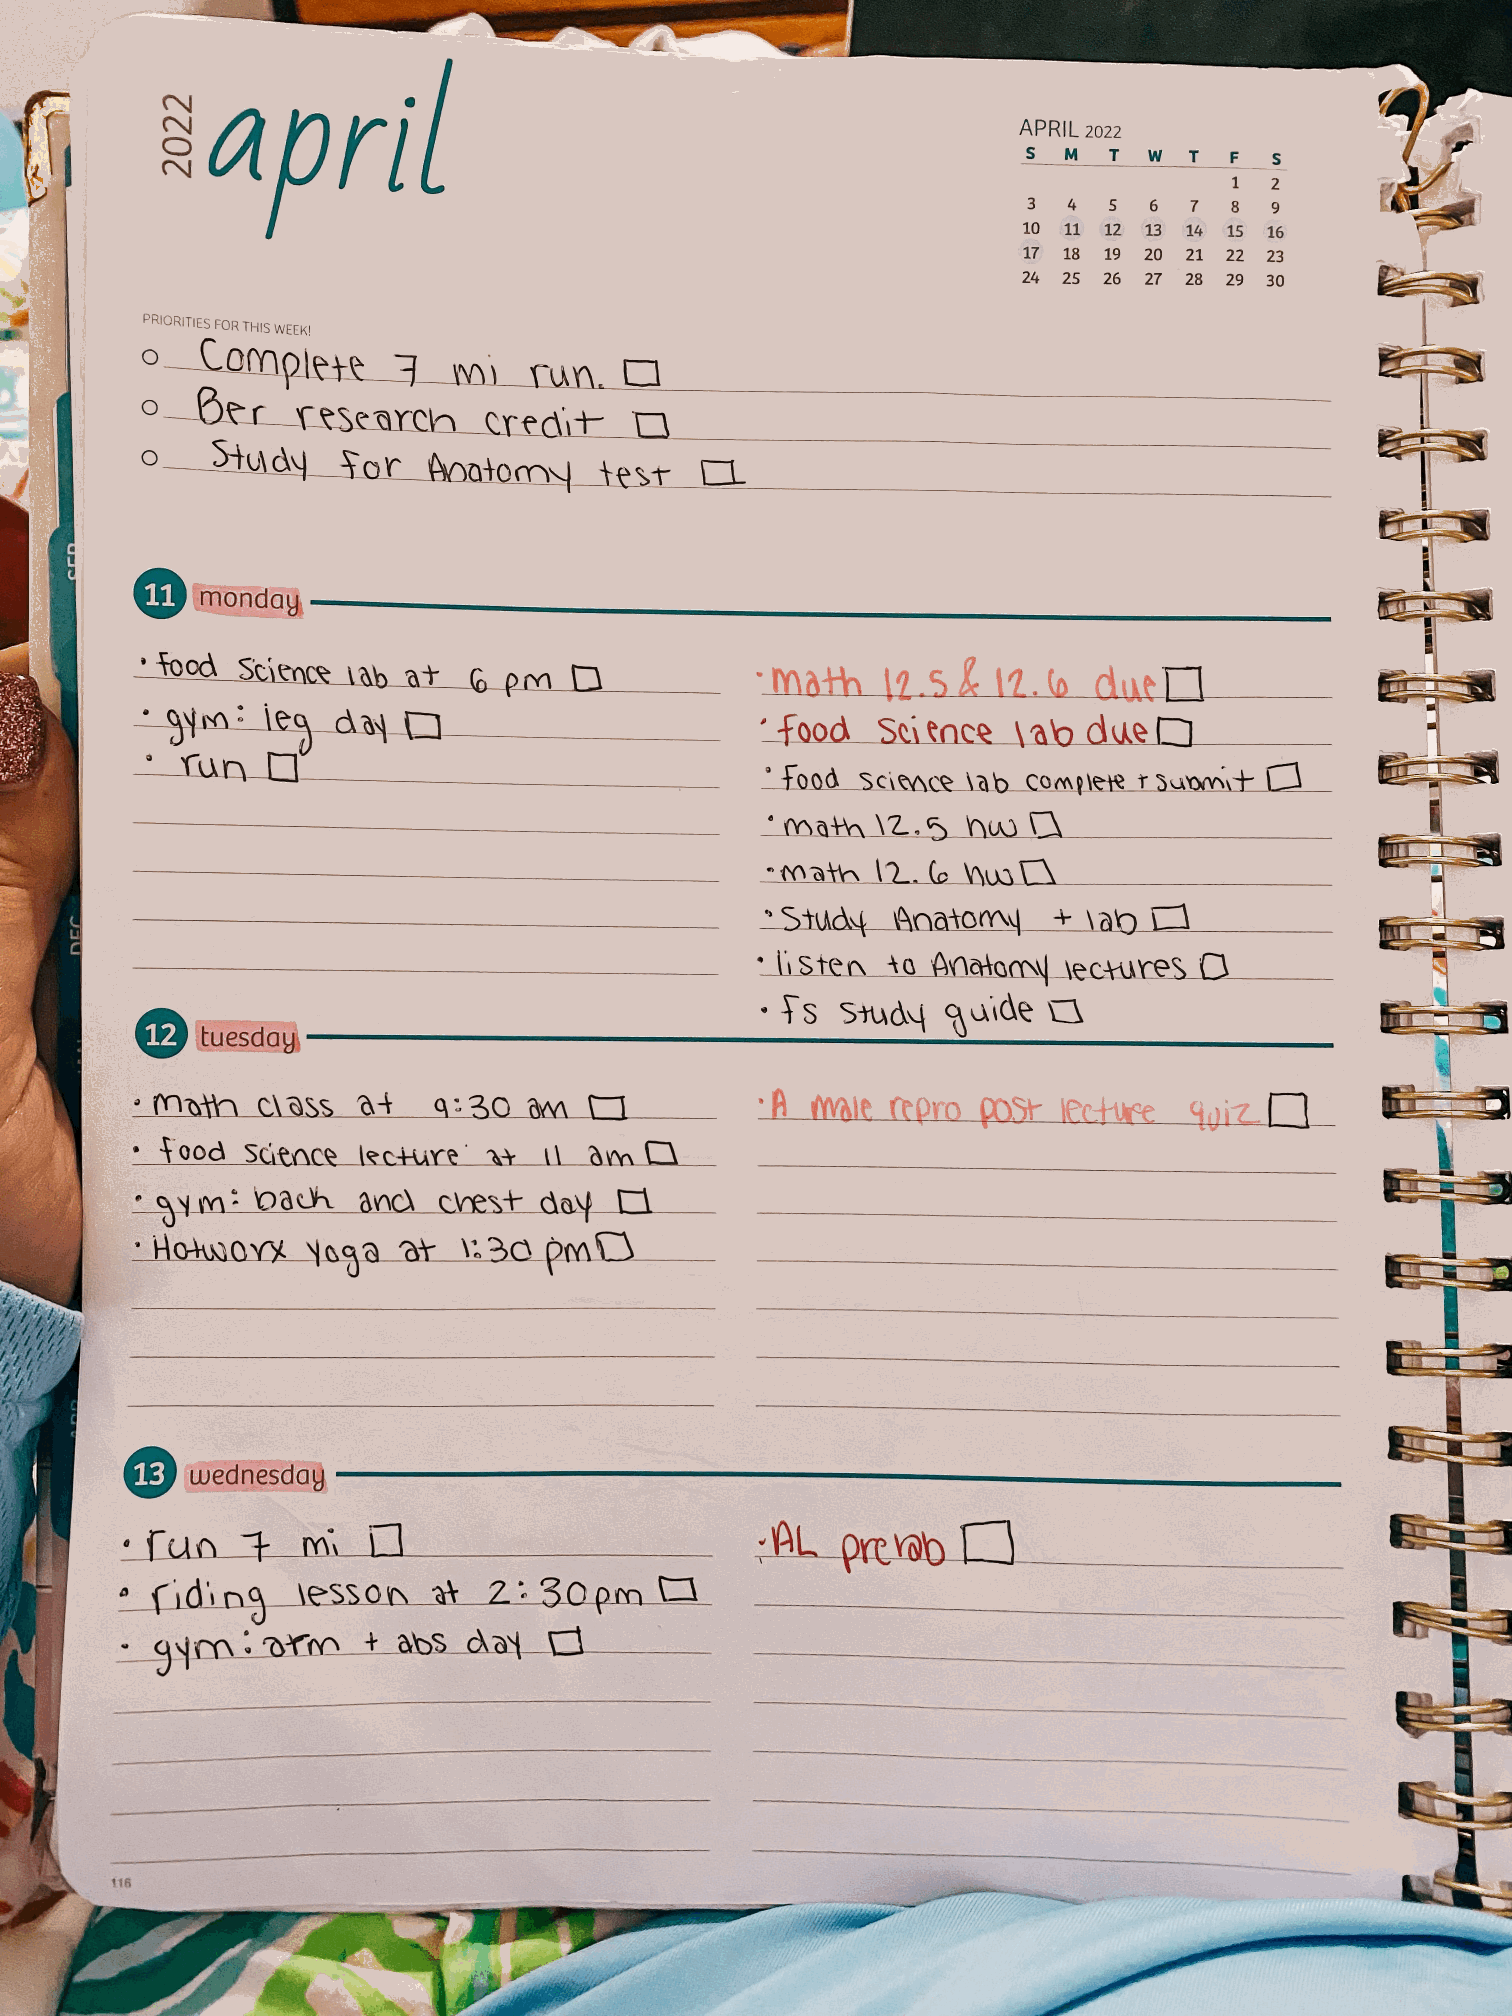 2022
april
APRIL 2022
S M T W T F S
1 2
3 4 5 6 7 8 9
10 11 12 13 14 15 16
17 18 19 20 21 22 23
24 25 26 27 28 29 30
PRIORITIES FOR THIS WEEK!
Complete 7 mi run.
Ber research credit
Study for Anatomy test
11 monday
· food science lab at 6 pm
· gym: leg day
· run
· math 12.5 & 12.6 due
· food science lab due
· food science lab complete + submit
· math 12.5 hw
· math 12.6 hw
· Study Anatomy + lab
· listen to Anatomy lectures
· fs study guide
12 tuesday
· math class at 9:30 am
· food science lecture at 11 am
· gym: back and chest day
· Hotworx yoga at 1:30 pm
· A male repro post lecture quiz
13 wednesday
· run 7 mi
· riding lesson at 2:30pm
· gym: arm + abs day
· AL prelab
116
SEP
DEC